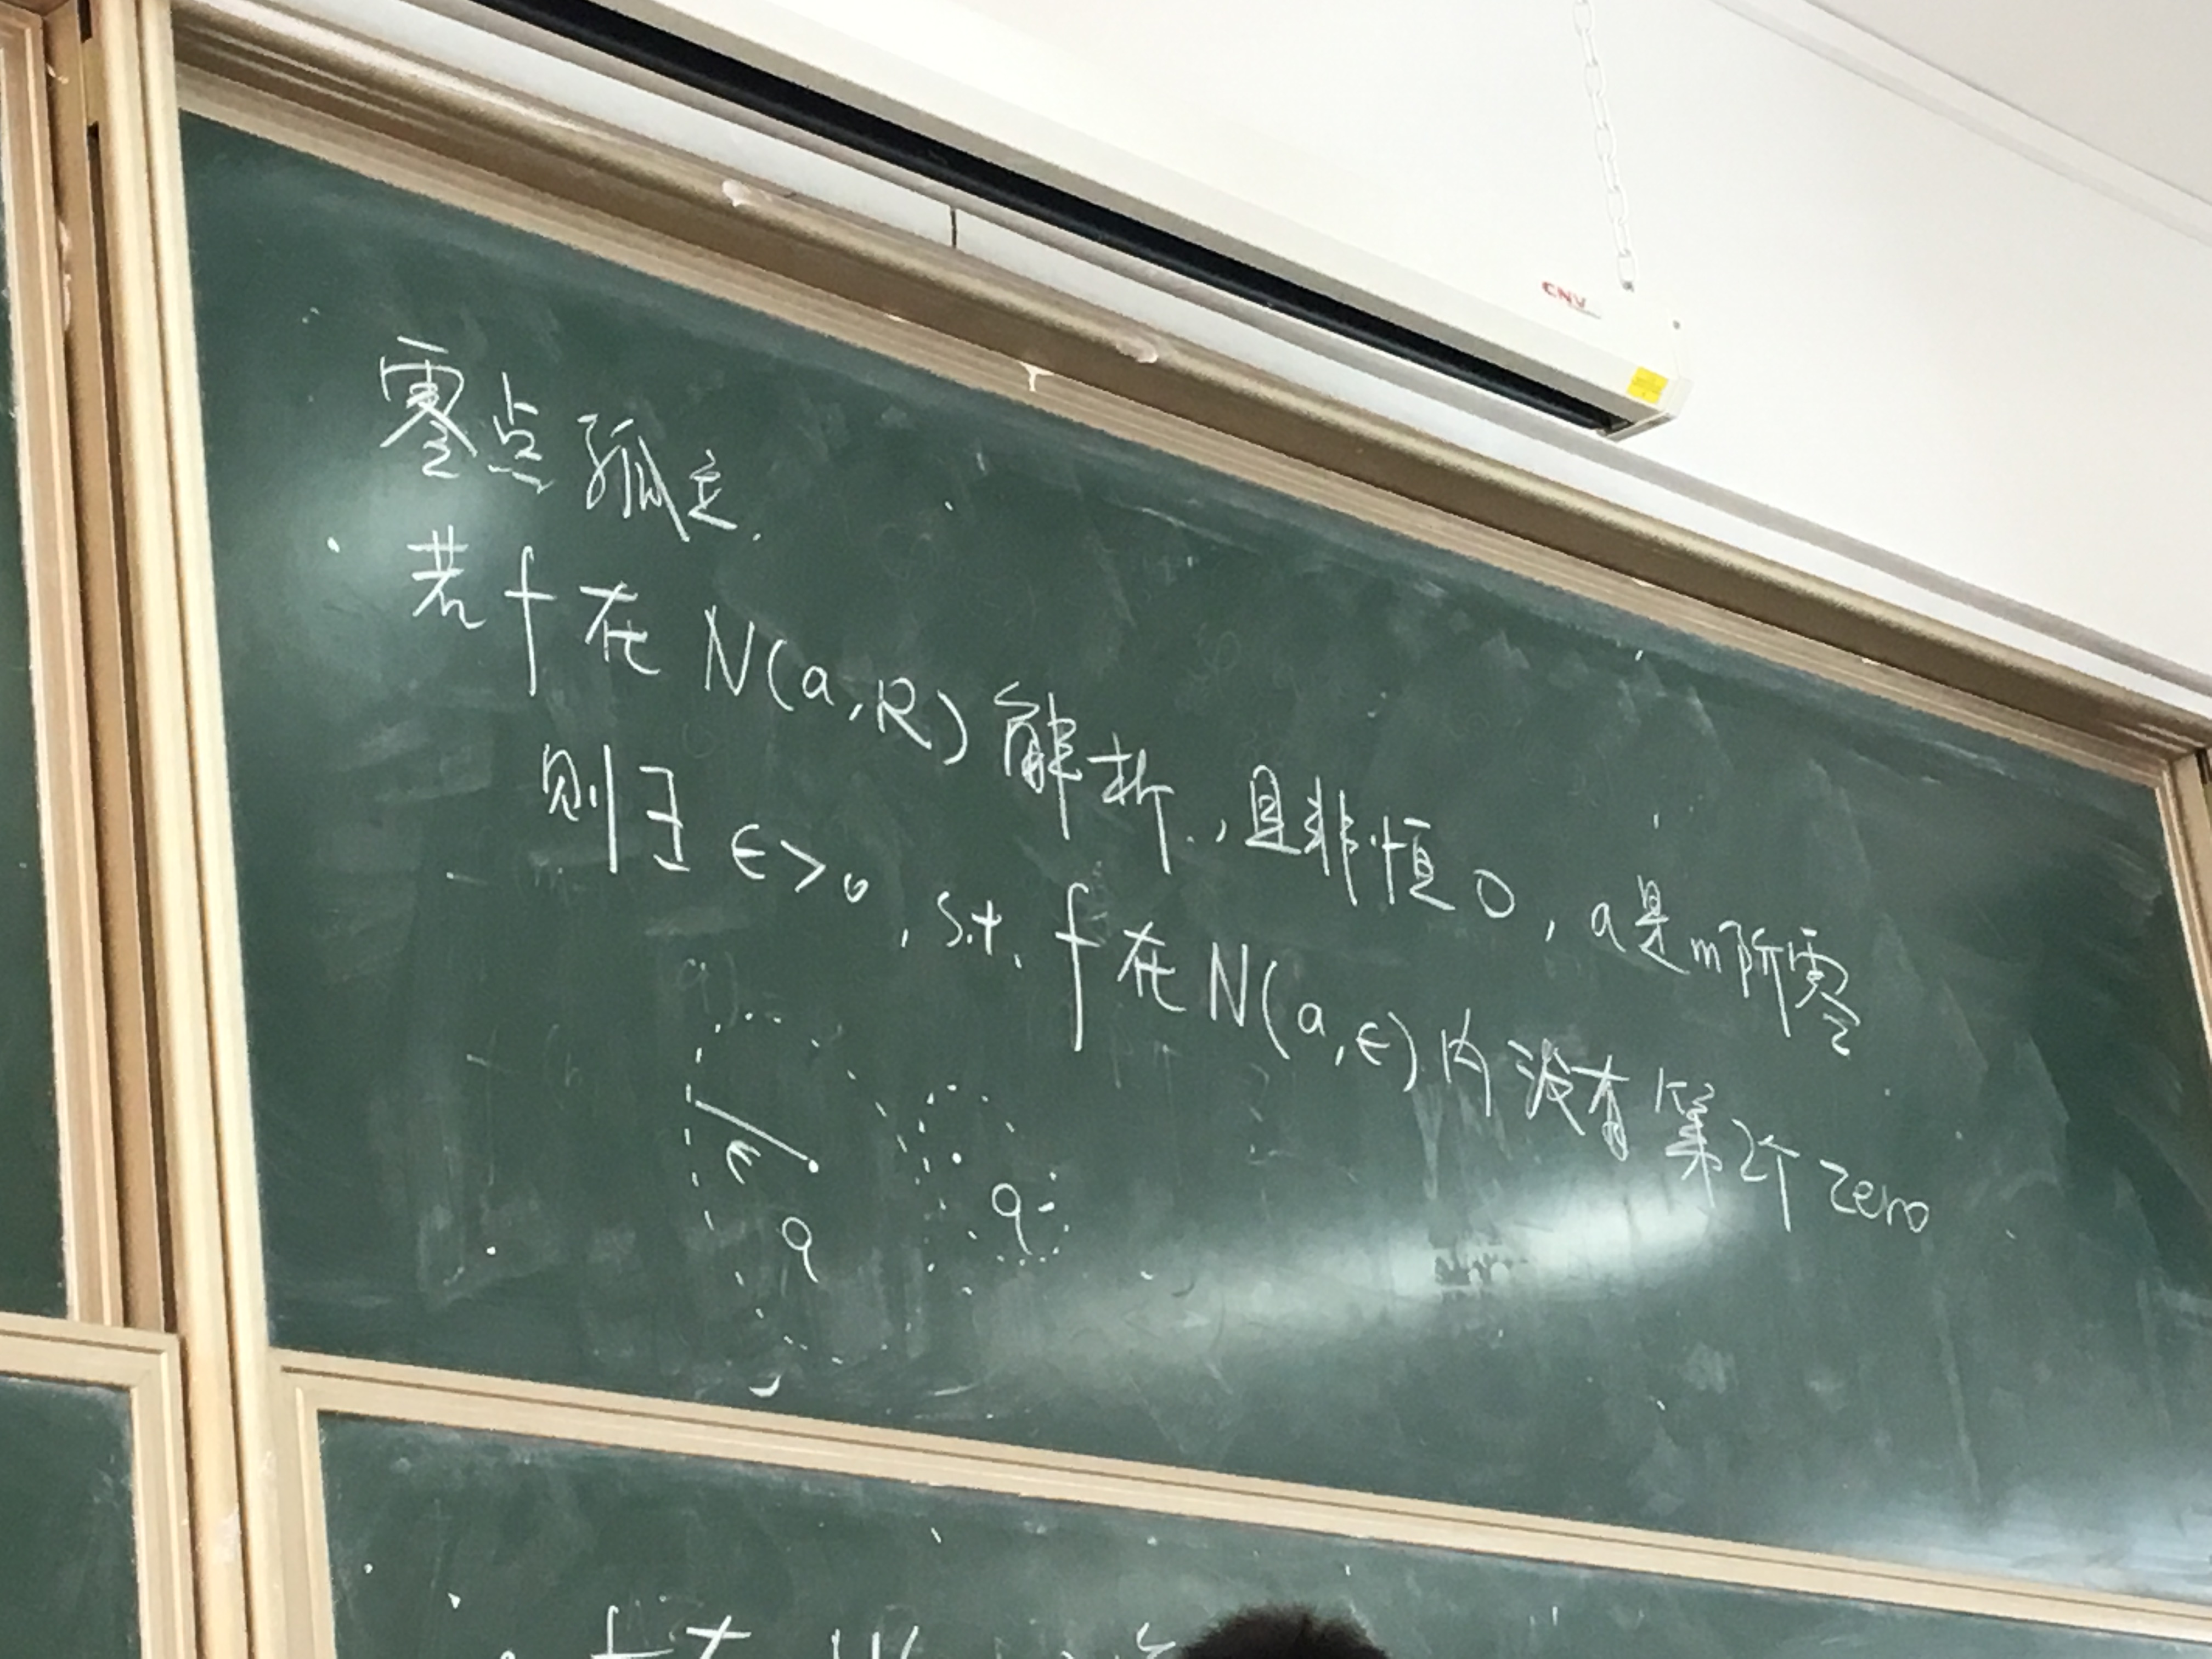 CNV
零点孤立.
若 f 在 N(a,R) 解析, 且非恒0, a是m阶零
则∃ ε>0, s.t. f 在 N(a,ε) 内没有第2个 zero
ε
a
a